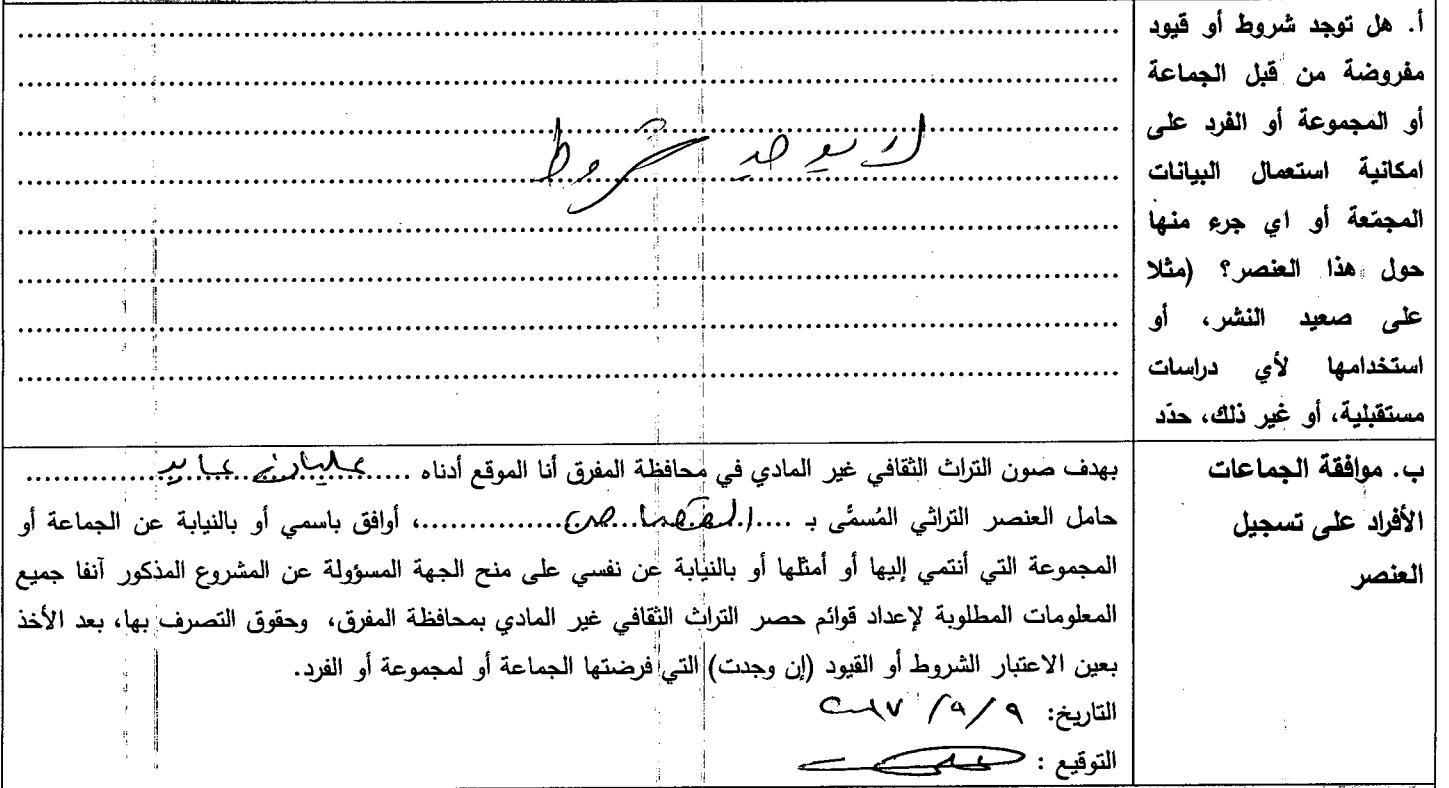 أ. هل توجد شروط أو قيود
مفروضة من قبل الجماعة
أو المجموعة أو الفرد على
امكانية استعمال البيانات
المجمّعة أو اي جرء منها
حول هذا العنصر؟ (مثلا
على صعيد النشر، أو
استخدامها لأي دراسات
مستقبلية، أو غير ذلك، حدّد
لا يوجد شروط
ب. موافقة الجماعات
الأفراد على تسجيل
العنصر
بهدف صون التراث الثقافي غير المادي في محافظة المفرق أنا الموقع أدناه ..... عايد ..............
حامل العنصر التراثي المُسمَّى بـ ..... القصاص ..............، أوافق باسمي أو بالنيابة عن الجماعة أو
المجموعة التي أنتمي إليها أو أمثلها أو بالنيابة عن نفسي على منح الجهة المسؤولة عن المشروع المذكور آنفا جميع
المعلومات المطلوبة لإعداد قوائم حصر التراث الثقافي غير المادي بمحافظة المفرق، وحقوق التصرف بها، بعد الأخذ
بعين الاعتبار الشروط أو القيود (إن وجدت) التي فرضتها الجماعة أو لمجموعة أو الفرد.
التاريخ: ٩/٩/ ٢٠١٧
التوقيع :